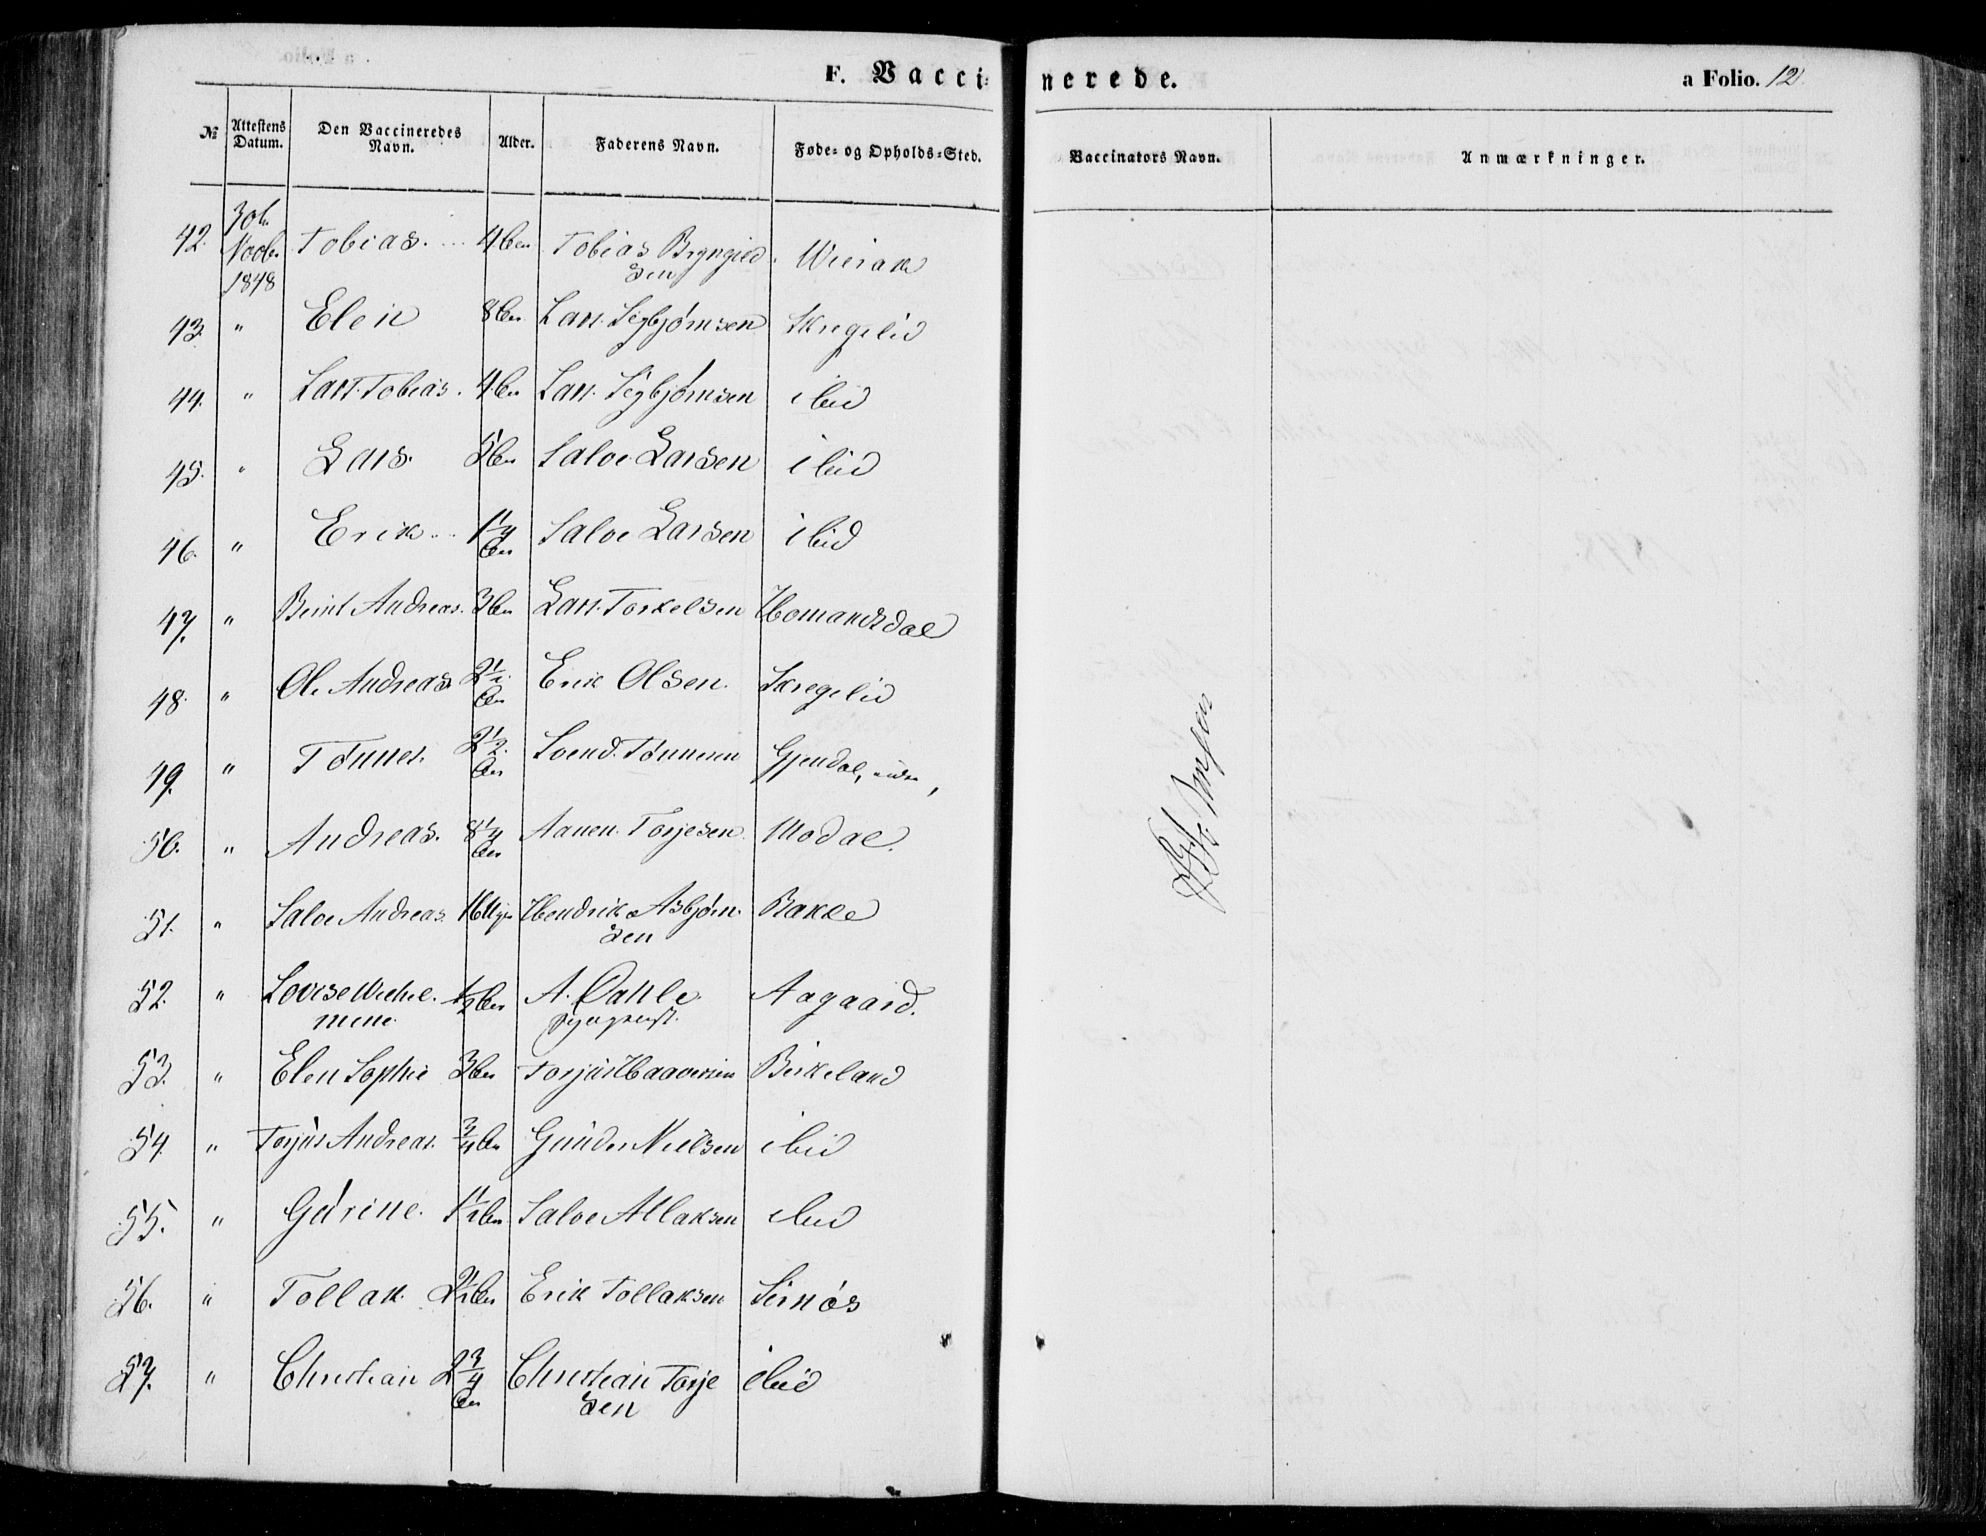 F. Vaccinerede.
a Folio. 12
№ Attestens Datum. Den Vaccineredes Navn. Alder. Faderens Navn. Føde- og Opholds-Sted. Vaccinators Navn. Anmærkninger.
42. 30te Novbr 1848 Tobias. 4 Tobias Bryngield
sen
43. " Elen 8 Lars Sigbjørnsen Skregelid
44. " Lars Tobias. 4 Lars Sigbjørnsen ibid
45. " Lars. 5 Salve Larsen ibid
46. " Erik 1 1/4 Salve Larsen ibid
47. " Berint Andreas. 3 Lars Torkelsen Homandsdal
48. " Ole Andreas 2 1/2 Erik Olsen. Skregelid
49. " Tønnes. 2 1/2 Svend Tønnesen Gjendal,
50. " Andreas. 8 1/4 Aanen Torjesen Modal.
51. " Salve Andreas. 16 Uger Hendrik Asbjørn
sen Bakke
52. " Lovise Wilhel
mine 1/2 A. Dahle Aagaard.
53. " Elen Sophie 3 Torjus Haaversen Birkeland
54. " Torjus Andreas. 3/4 Gunder Nielsen ibid
55. " Gurine. 1 1/2 Salve Allaksen ibid
56. " Tollak. 2 1/2 Erik Tollaksen Sirnøs
57. " Christian 2 3/4 Christian Torje
sen ibid